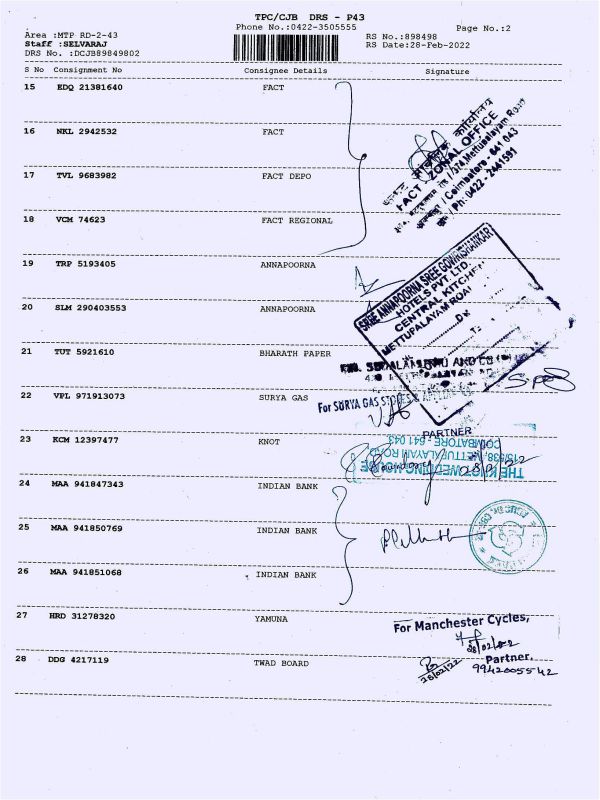 TPC/CJB DRS - P43
Phone No.:0422-3505555
Page No.:2
Area :MTP RD-2-43
Staff :SELVARAJ
DRS No. :DCJB89849802
RS No.:898498
RS Date:28-Feb-2022
S No Consignment No Consignee Details Signature
15 EDQ 21381640 FACT
16 NKL 2942532 FACT
17 TVL 9683982 FACT DEPO
18 VCM 74623 FACT REGIONAL
FACT ZONAL OFFICE
/ 374, Mettupalayam Road
/ Coimbatore - 641 043
/ Ph: 0422 - 2441591
19 TRP 5193405 ANNAPOORNA
20 SLM 290403553 ANNAPOORNA
SREE ANNAPOORNA SREE GOWRISHANKAR
HOTELS PVT. LTD.
CENTRAL KITCHEN
METTUPALAYAM ROAD
21 TUT 5921610 BHARATH PAPER
AND CO
22 VPL 971913073 SURYA GAS
For SURYA GAS STOVES &
PARTNER
23 KCM 12397477 KNOT
THE KNOT WEDDING HOUSE
METTUPALAYAM ROAD
COIMBATORE - 641 043
24 MAA 941847343 INDIAN BANK
25 MAA 941850769 INDIAN BANK
26 MAA 941851068 INDIAN BANK
27 HRD 31278320 YAMUNA
For Manchester Cycles,
28/02/22
Partner.
9942005542
28 DDG 4217119 TWAD BOARD
28/02/22